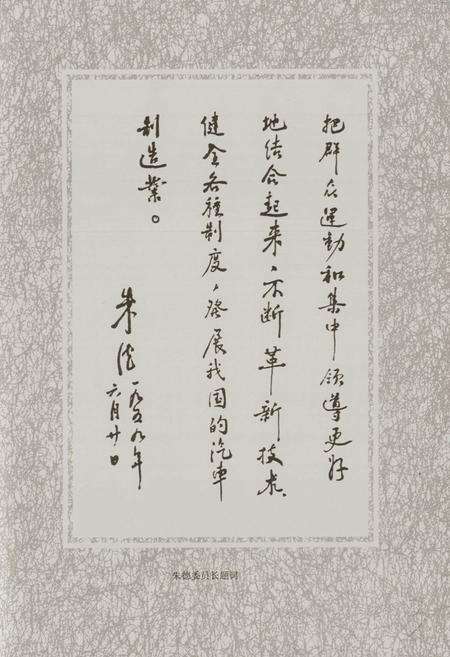 把群众運動和集中领導更好
地结合起来、不断革新技术、
健全各種制度、發展我国的汽車
制造業。
朱德 一九五九年
六月廿日
朱德委员长题词